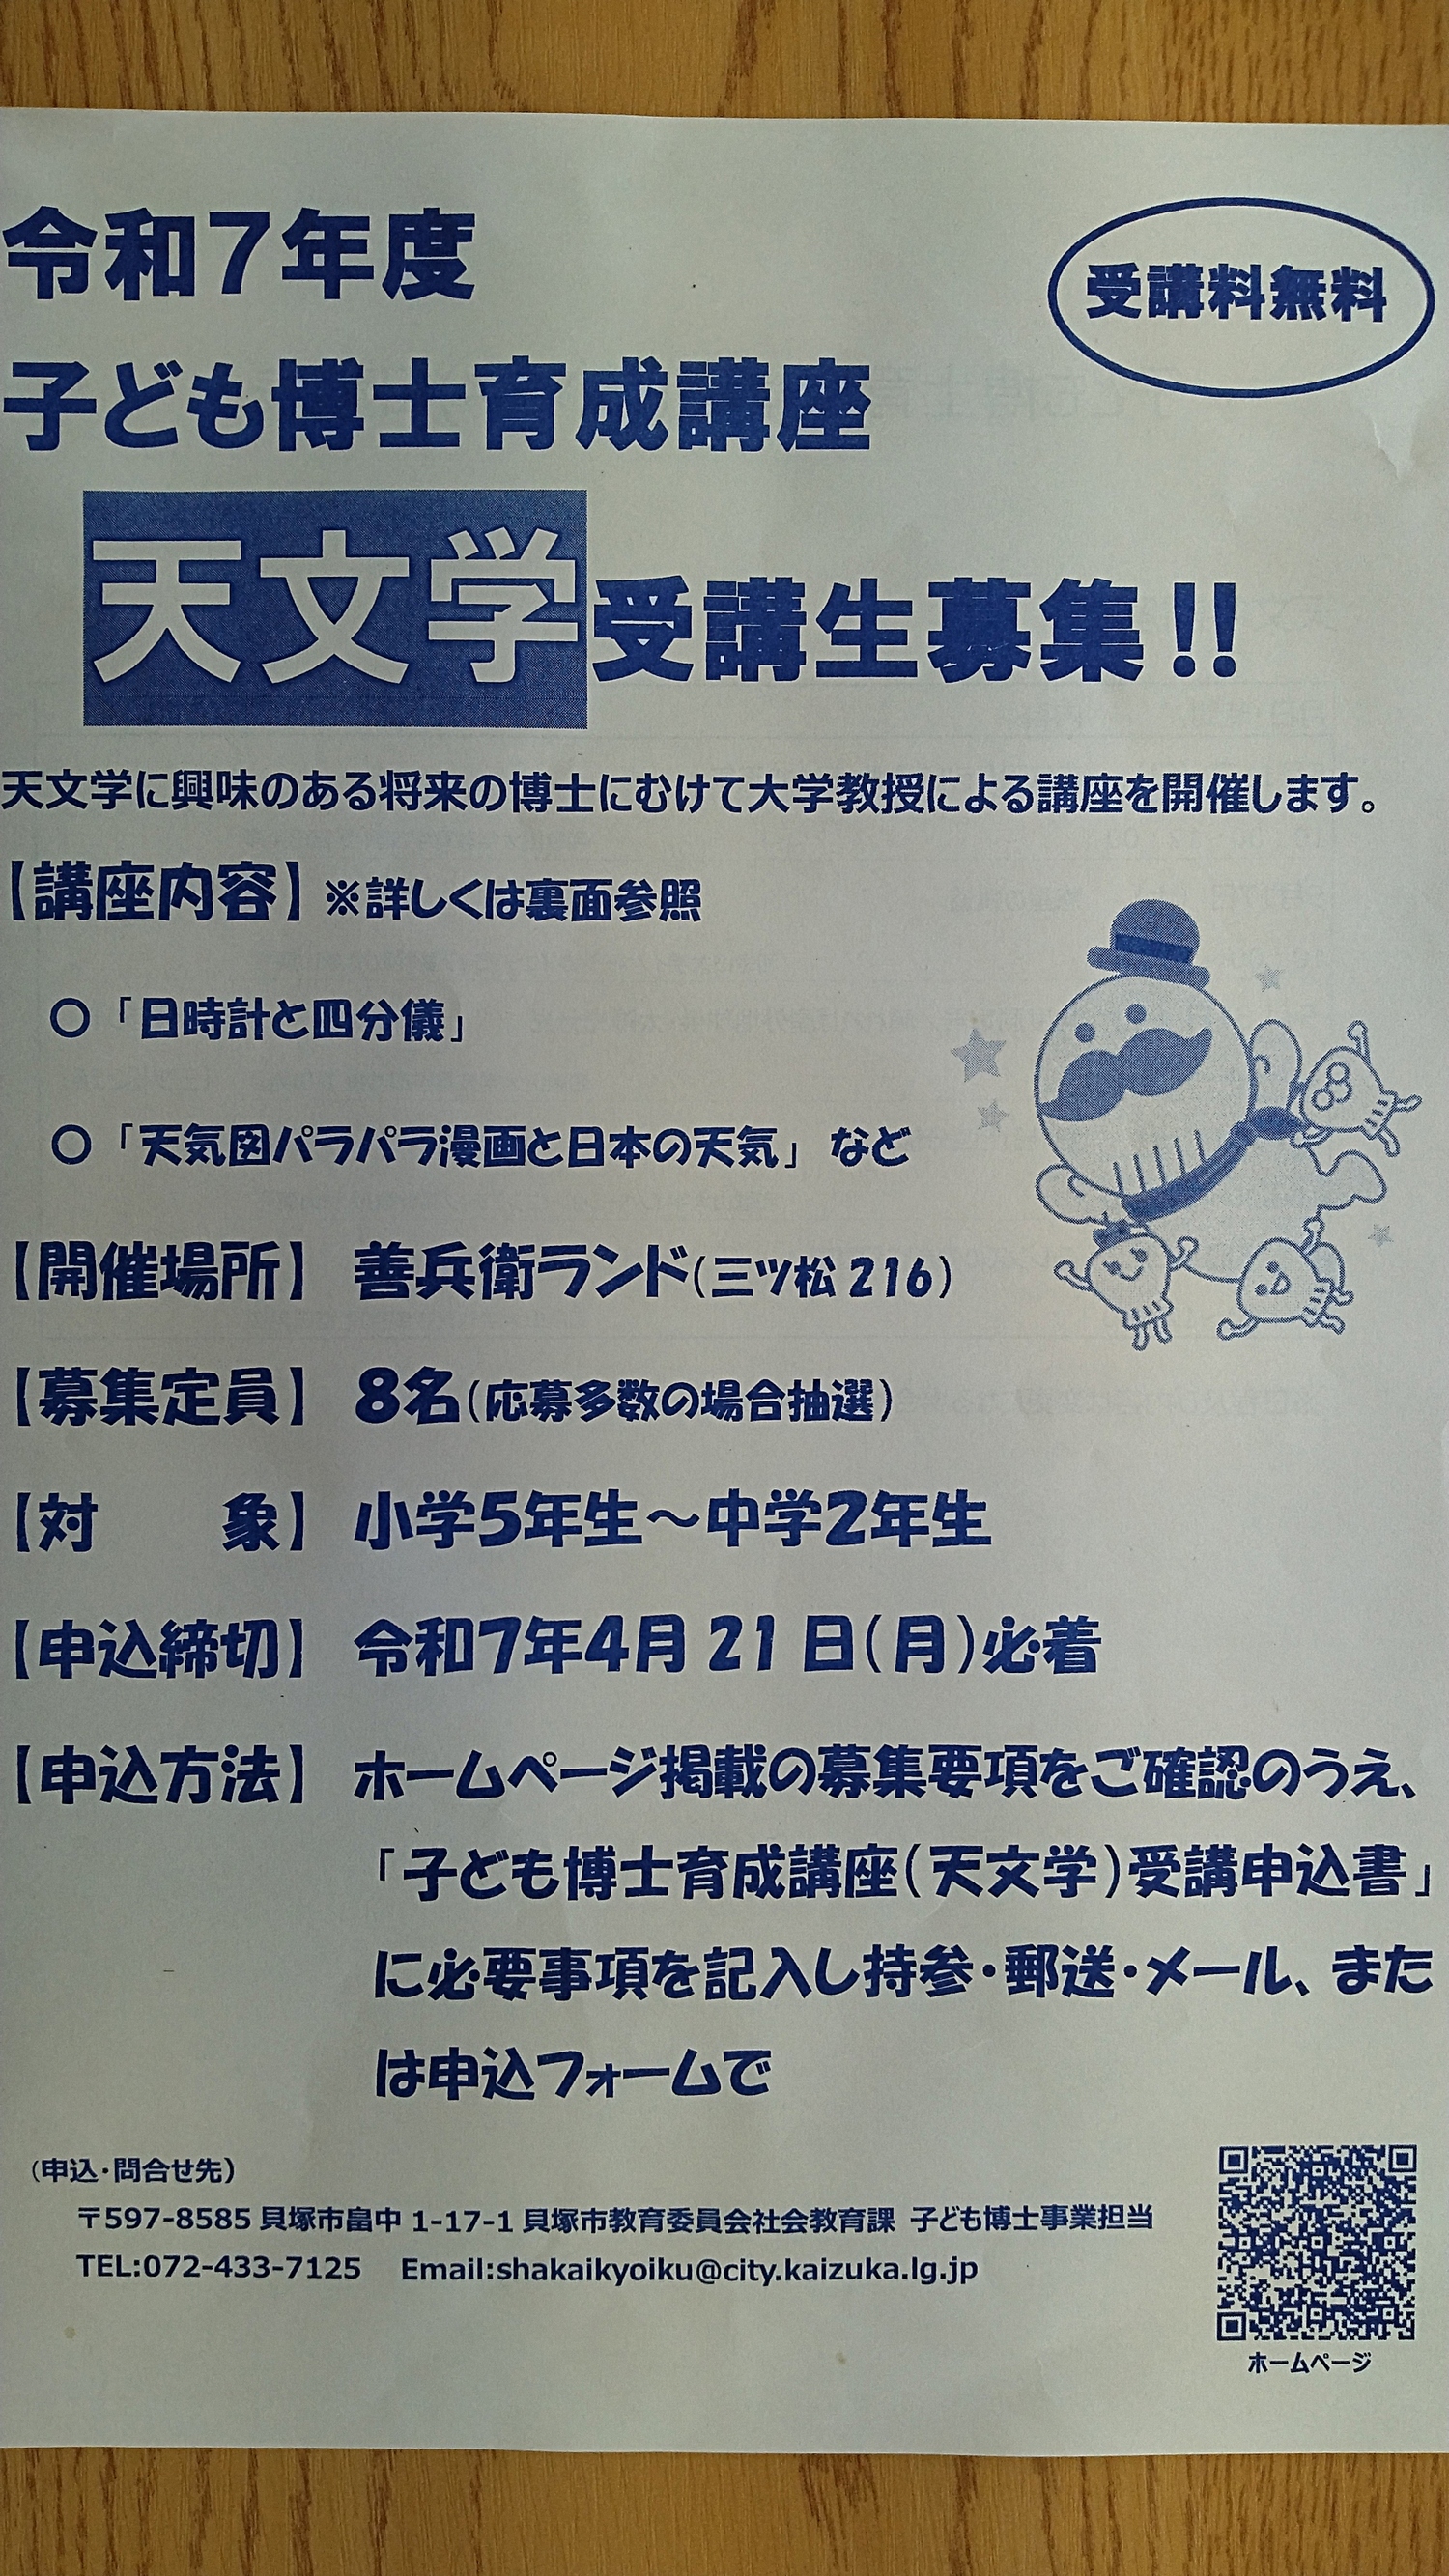 令和7年度
受講料無料
子ども博士育成講座
天文学受講生募集!!
天文学に興味のある将来の博士にむけて大学教授による講座を開催します。
【講座内容】※詳しくは裏面参照
○「日時計と四分儀」
○「天気図パラパラ漫画と日本の天気」など
【開催場所】 善兵衛ランド(三ツ松 216)
【募集定員】 8名(応募多数の場合抽選)
【対　　象】 小学5年生～中学2年生
【申込締切】 令和7年4月 21 日(月)必着
【申込方法】 ホームページ掲載の募集要項をご確認のうえ、
「子ども博士育成講座(天文学)受講申込書」
に必要事項を記入し持参・郵送・メール、また
は申込フォームで
(申込・問合せ先)
〒597-8585 貝塚市畠中 1-17-1 貝塚市教育委員会社会教育課 子ども博士事業担当
TEL:072-433-7125 Email:shakaikyoiku@city.kaizuka.lg.jp
ホームページ